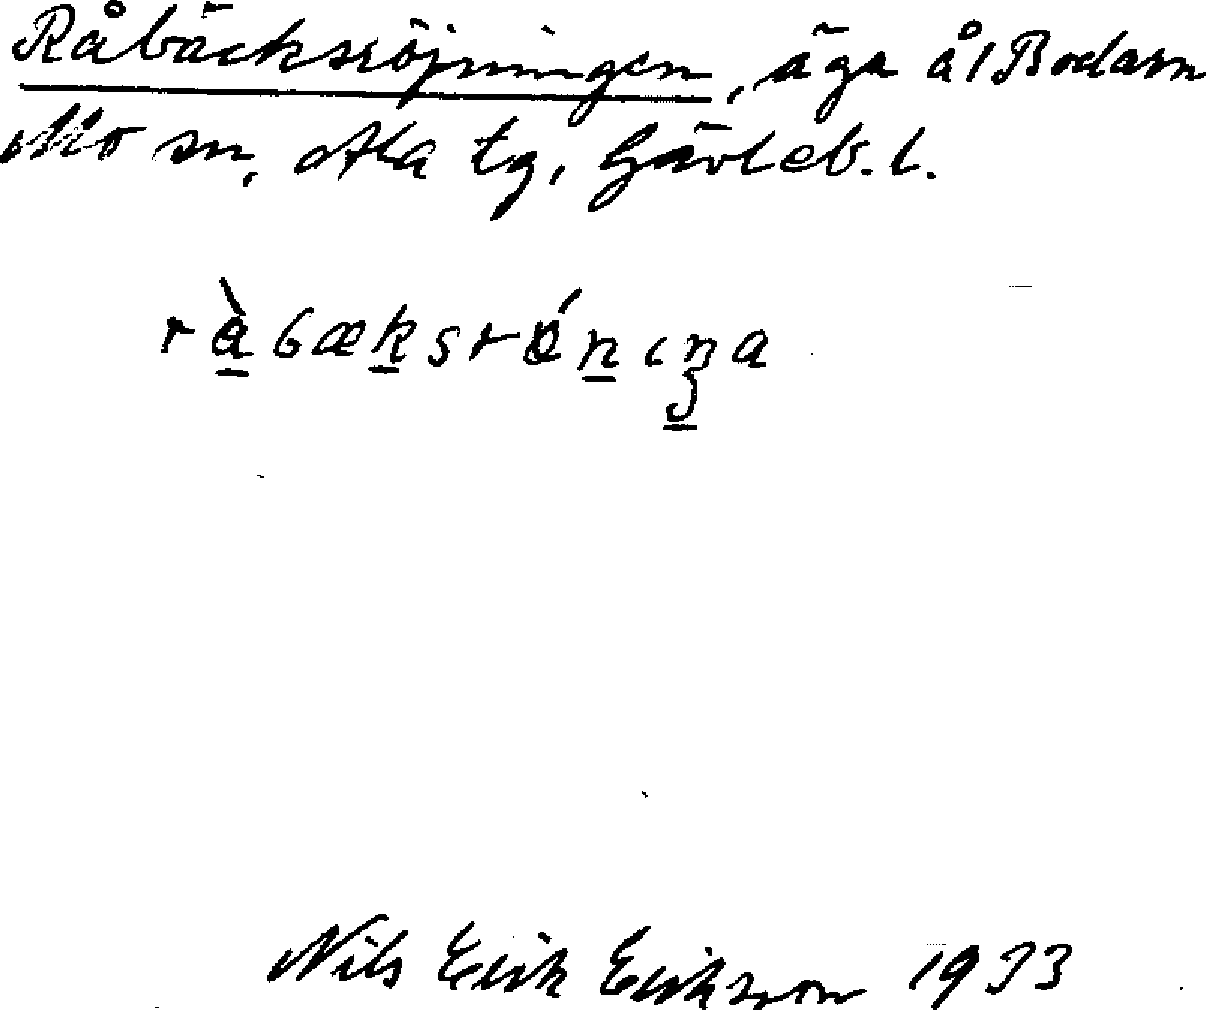 Råbäcksröjningen, äga å 1 Bodarn
Mo sn, Ala tg, Gävleb. l.
ràbækstrǿnıŋa
Nils Erik Eriksson 1933